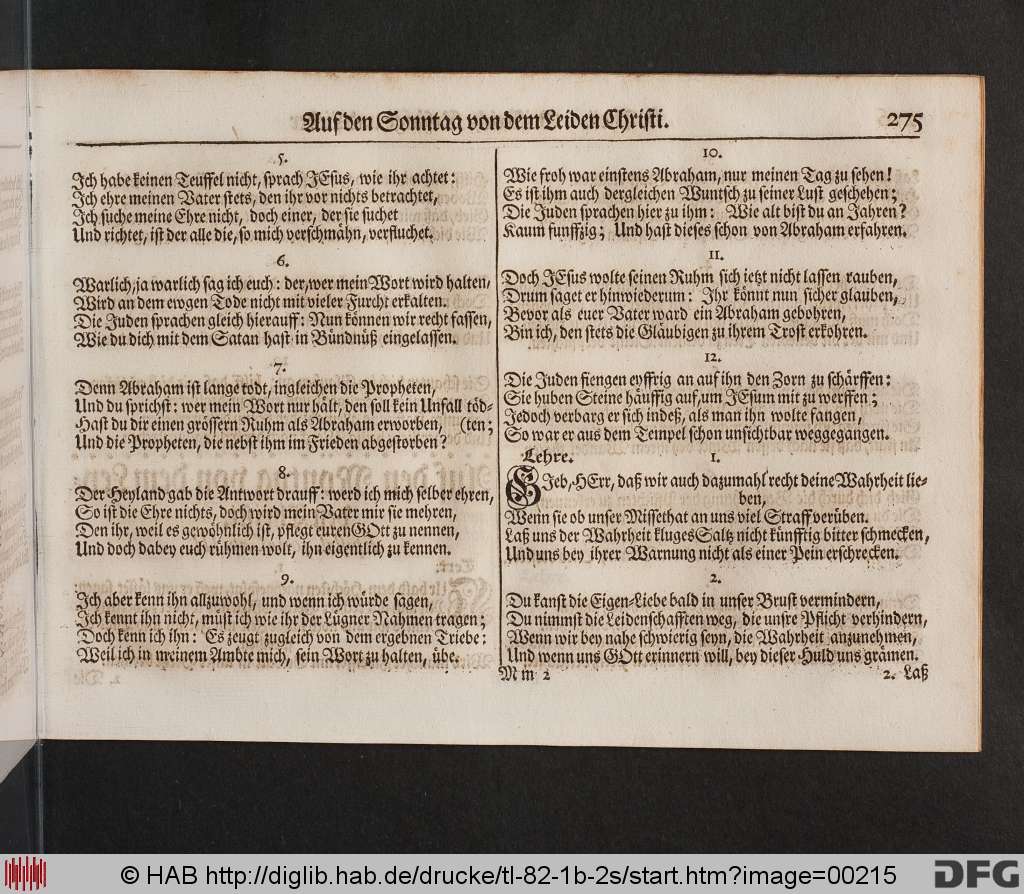 Auf den Sonntag von dem Leiden Christi. 275
5.
Ich habe keinen Teuffel nicht, sprach JEsus, wie ihr achtet:
Ich ehre meinen Vater stets, den ihr vor nichts betrachtet,
Ich suche meine Ehre nicht, doch einer, der sie suchet
Und richtet, ist der alle die, so mich verschmähn, verfluchet.
6.
Warlich, ja warlich sag ich euch: der, wer mein Wort wird halten,
Wird an dem ewgen Tode nicht mit vieler Furcht erkalten.
Die Juden sprachen gleich hierauff: Nun können wir recht fassen,
Wie du dich mit dem Satan hast in Bündnüß eingelassen.
7.
Denn Abraham ist lange todt, ingleichen die Propheten,
Und du sprichst: wer mein Wort nur hält, den soll kein Unfall töd-
Hast du dir einen grössern Ruhm als Abraham erworben, (ten;
Und die Propheten, die nebst ihm im Frieden abgestorben?
8.
Der Heyland gab die Antwort drauff: werd ich mich selber ehren,
So ist die Ehre nichts, doch wird mein Vater mir sie mehren,
Den ihr, weil es gewöhnlich ist, pflegt euren GOtt zu nennen,
Und doch dabey euch rühmen wolt, ihn eigentlich zu kennen.
9.
Ich aber kenn ihn allzuwohl, und wenn ich würde sagen,
Ich kennt ihn nicht, müst ich wie ihr der Lügner Nahmen tragen;
Doch kenn ich ihn: Es zeugt zugleich von dem ergebnen Triebe:
Weil ich in meinem Ambte mich, sein Wort zu halten, übe.
10.
Wie froh war einstens Abraham, nur meinen Tag zu sehen!
Es ist ihm auch dergleichen Wuntsch zu seiner Lust geschehen;
Die Juden sprachen hier zu ihm: Wie alt bist du an Jahren?
Kaum funffzig; Und hast dieses schon von Abraham erfahren.
11.
Doch JEsus wolte seinen Ruhm sich ietzt nicht lassen rauben,
Drum saget er hinwiederum: Ihr könnt nun sicher glauben,
Bevor als euer Vater ward ein Abraham gebohren,
Bin ich, den stets die Gläubigen zu ihrem Trost erkohren.
12.
Die Juden fiengen eyffrig an auf ihn den Zorn zu schärffen:
Sie huben Steine häuffig auf, um JEsum mit zu werffen;
Jedoch verbarg er sich indeß, als man ihn wolte fangen,
So war er aus dem Tempel schon unsichtbar weggegangen.
Lehre. 1.
GJeb, HErr, daß wir auch dazumahl recht deine Wahrheit lie-
ben,
Wenn sie ob unser Missethat an uns viel Straff verüben.
Laß uns der Wahrheit kluges Saltz nicht künfftig bitter schmecken,
Und uns bey ihrer Warnung nicht als einer Pein erschrecken.
2.
Du kanst die Eigen-Liebe bald in unser Brust vermindern,
Du nimmst die Leidenschafften weg, die unsre Pflicht verhindern,
Wenn wir bey nahe schwierig seyn, die Wahrheit anzunehmen,
Und wenn uns GOtt erinnern will, bey dieser Huld uns grämen.
M m 2 2. Laß
© HAB http://diglib.hab.de/drucke/tl-82-1b-2s/start.htm?image=00215
DFG